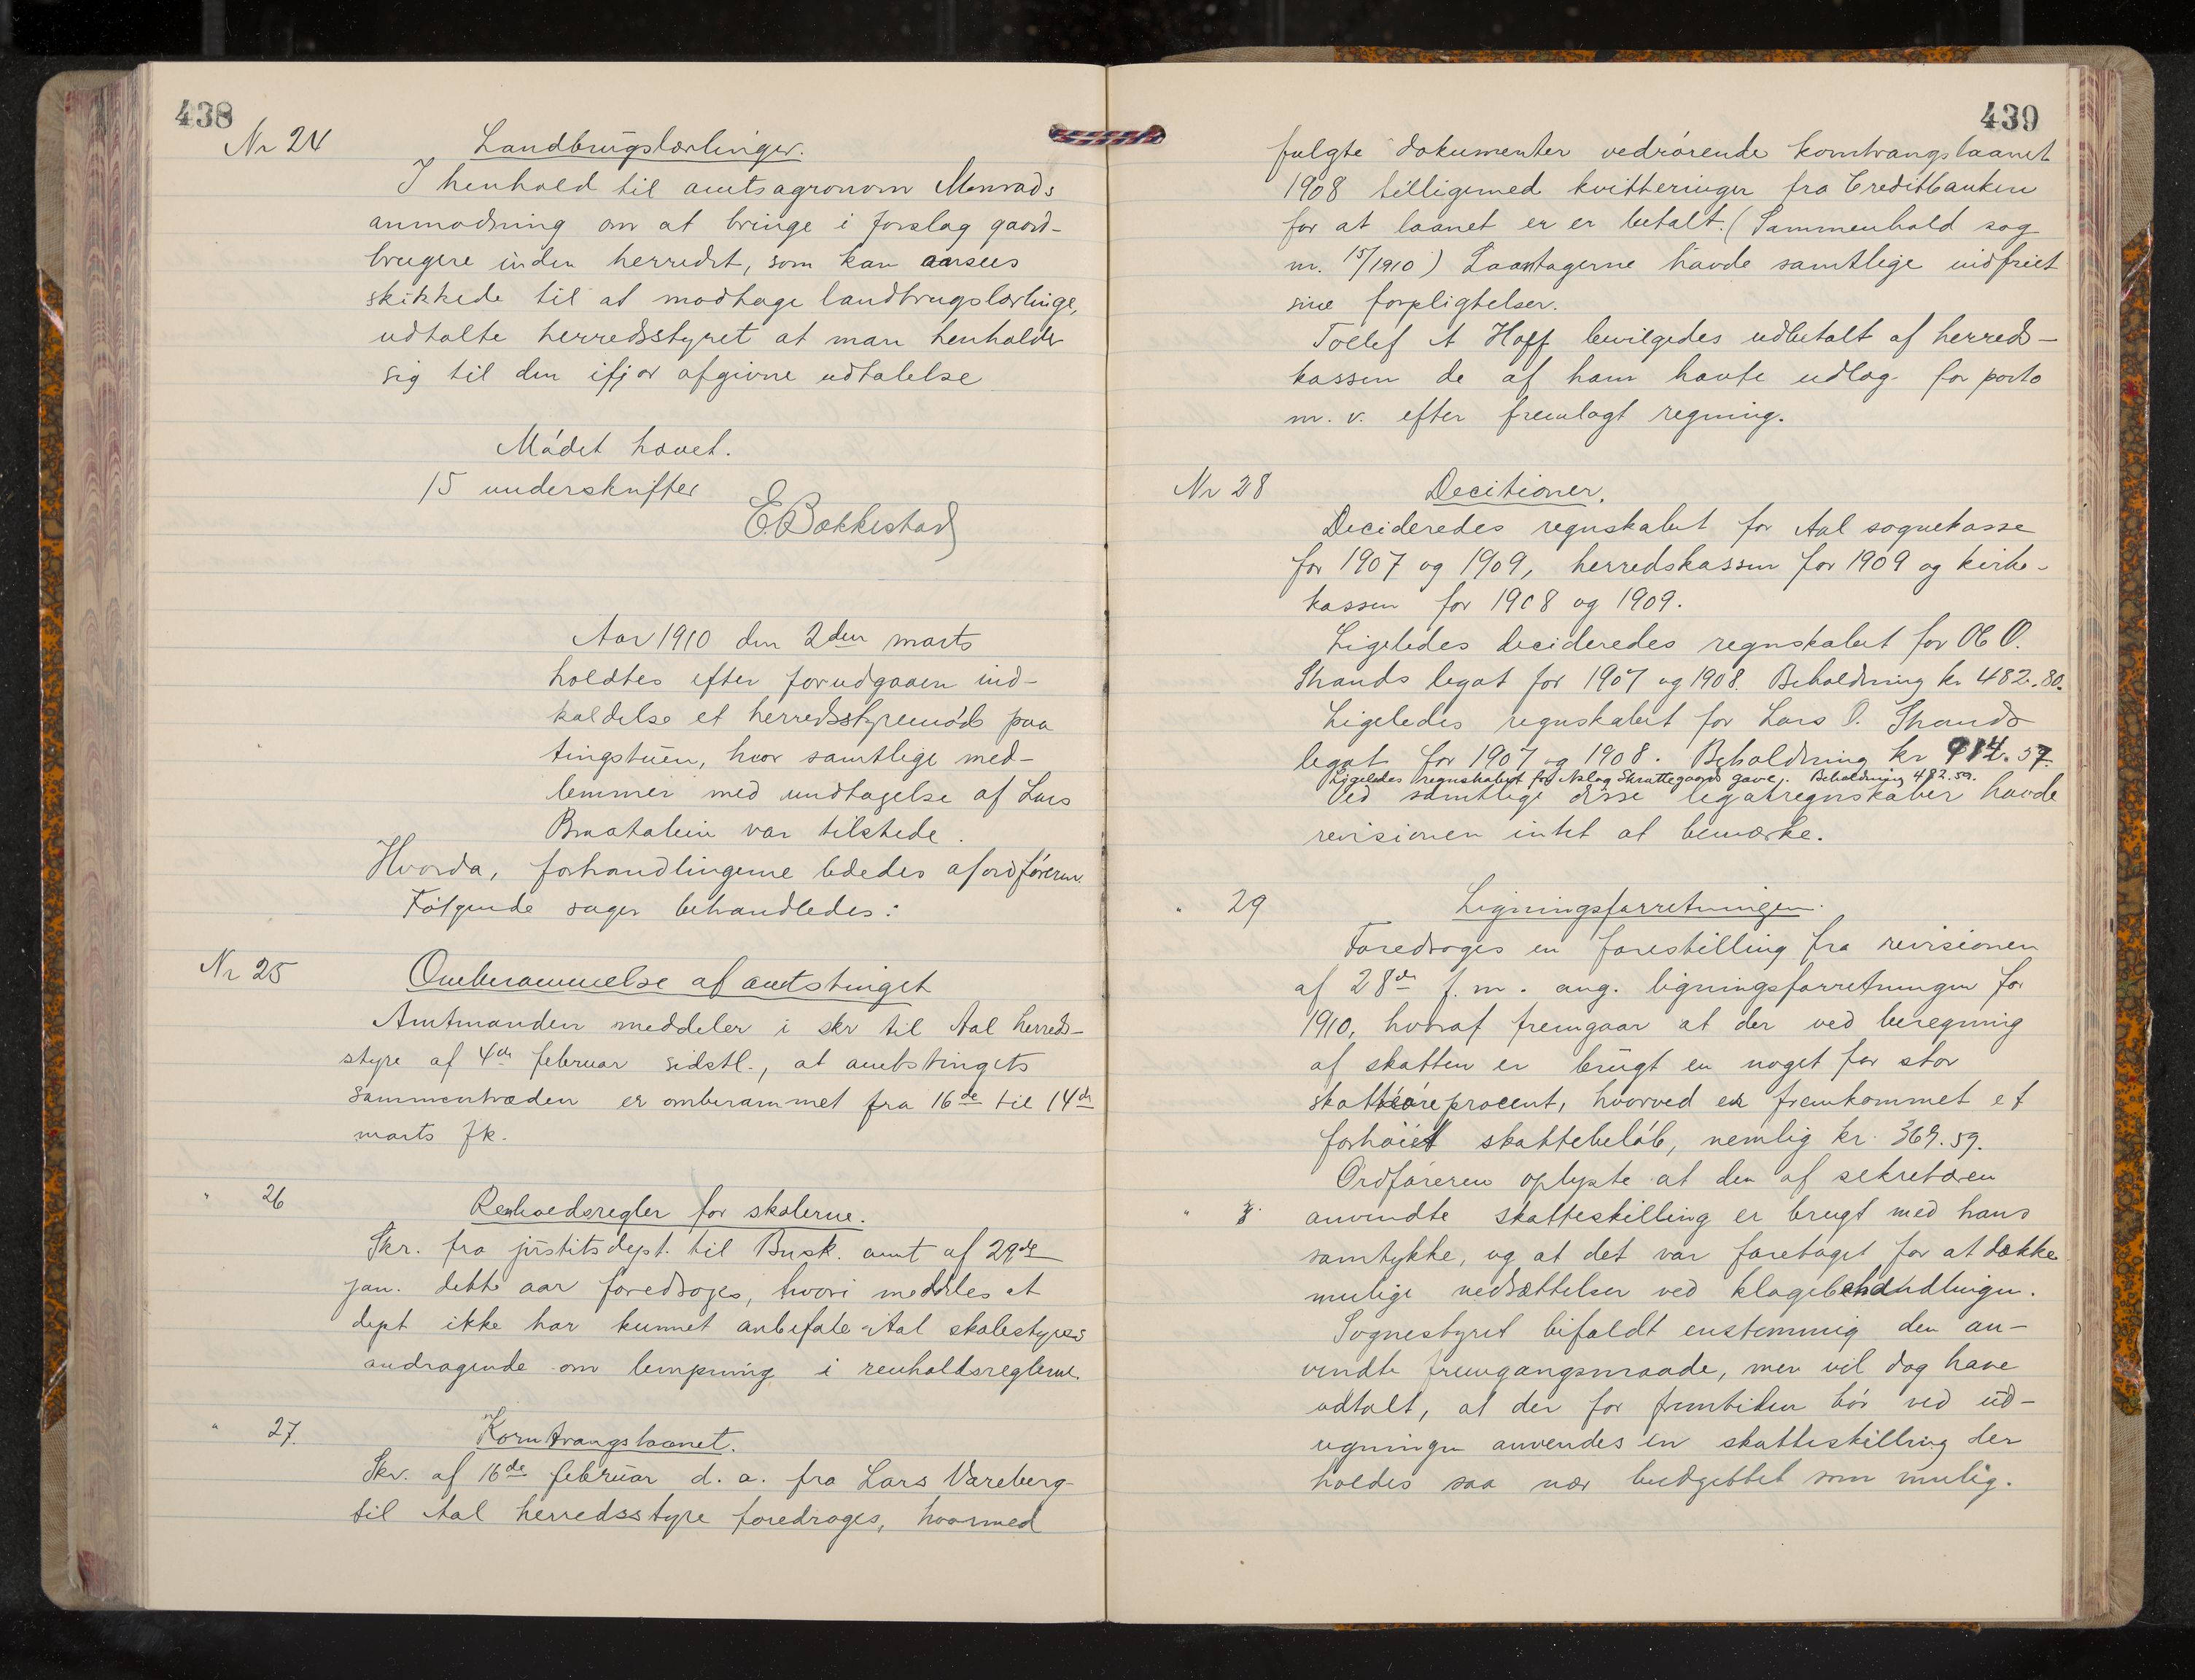 438
Nr 24 Landbrugslærlinger.
I henhold til amtsagronom Monrads
anmodning om at bringe i forslag gaard-
brugere inden herredet, som kan ansees
skikkede til at modtage landbrugslærlinge,
udtalte herredsstyret at man henholder
sig til den ifjor afgivne udtalelse
Mødet hævet.
15 underskrifter
E. Bækkestad
Aar 1910 den 2den marts
holdtes efter forudgaaen ind-
kaldelse et herredsstyremøde paa
tingstuen, hvor samtlige med-
lemmer med undtagelse af Lars
Braatalien var tilstede.
Hvorda, forhandlingerne lededes af ordføreren.
Følgende sager behandledes:
Nr 25 Omberammelse af amtstinget
Amtmanden meddeler i skr til Aal herreds-
styre af 4de februar sidstl., at amtstingets
sammentræden er omberammet fra 16de til 14de
marts fk.
" 26 Renholdsregler for skolerne.
Skr. fra justitsdept. til Busk. amt af 29de
jan. dette aar foredroges, hvori meddeles at
dept ikke har kunnet anbefale Aal skolestyres
andragende om lempning i renholdsreglerne.
" 27. Korntrangslaanet.
Skr. af 16de februar d. a. fra Lars Vareberg
til Aal herredsstyre foredroges, hvormed
439
fulgte dokumenter vedrørende korntrangslaanet
1908 tilligemed kvitteringer fra Creditbanken
for at laanet er er betalt. (Sammenhold sag
nr. 15/1910) Laantagerne havde samtlige indfriet
sine forpligtelser.
Tollef A Hoff bevilgedes udbetalt af herreds-
kassen de af ham havte udlæg for porto
m. v. efter fremlagt regning.
Nr 28 Decitioner.
Decideredes regnskabet for Aal sognekasse
for 1907 og 1909, herredskassen for 1909 og kirke-
kassen for 1908 og 1909.
Ligeledes decideredes regnskabet for Ol O.
Strands legat for 1907 og 1908. Beholdning kr 482.80.
Ligeledes regnskabet for Lars O. Strands
legat for 1907 og 1908. Beholdning kr 914.57.
Ligeledes regnskabet for Aslag Skrattegaards gave. Beholdning 482.59.
Ved samtlige disse legatregnskaber havde
revisionen intet at bemærke.
" 29 Ligningsforretningen.
Foredroges en forestilling fra revisionen
af 28de f. m. ang. ligningsforretningen for
1910, hvoraf fremgaar at der ved beregning
af skatten er brugt en noget for stor
skatteøreprocent, hvorved er fremkommet et
forhøiet skattebeløb, nemlig kr 369.59.
Ordføreren oplyste at den af sekretæren
anvendte skatteskilling er brugt med hans
samtykke, og at det var foretaget for at dække
mulige nedsættelser ved klagebehandlingen.
Sognestyret bifaldt enstemmig den an-
vendte fremgangsmaade, men vil dog have
udtalt, at der for fremtiden bør ved ud-
regningen anvendes en skatteskilling der
holdes saa nær budgettet som mulig.